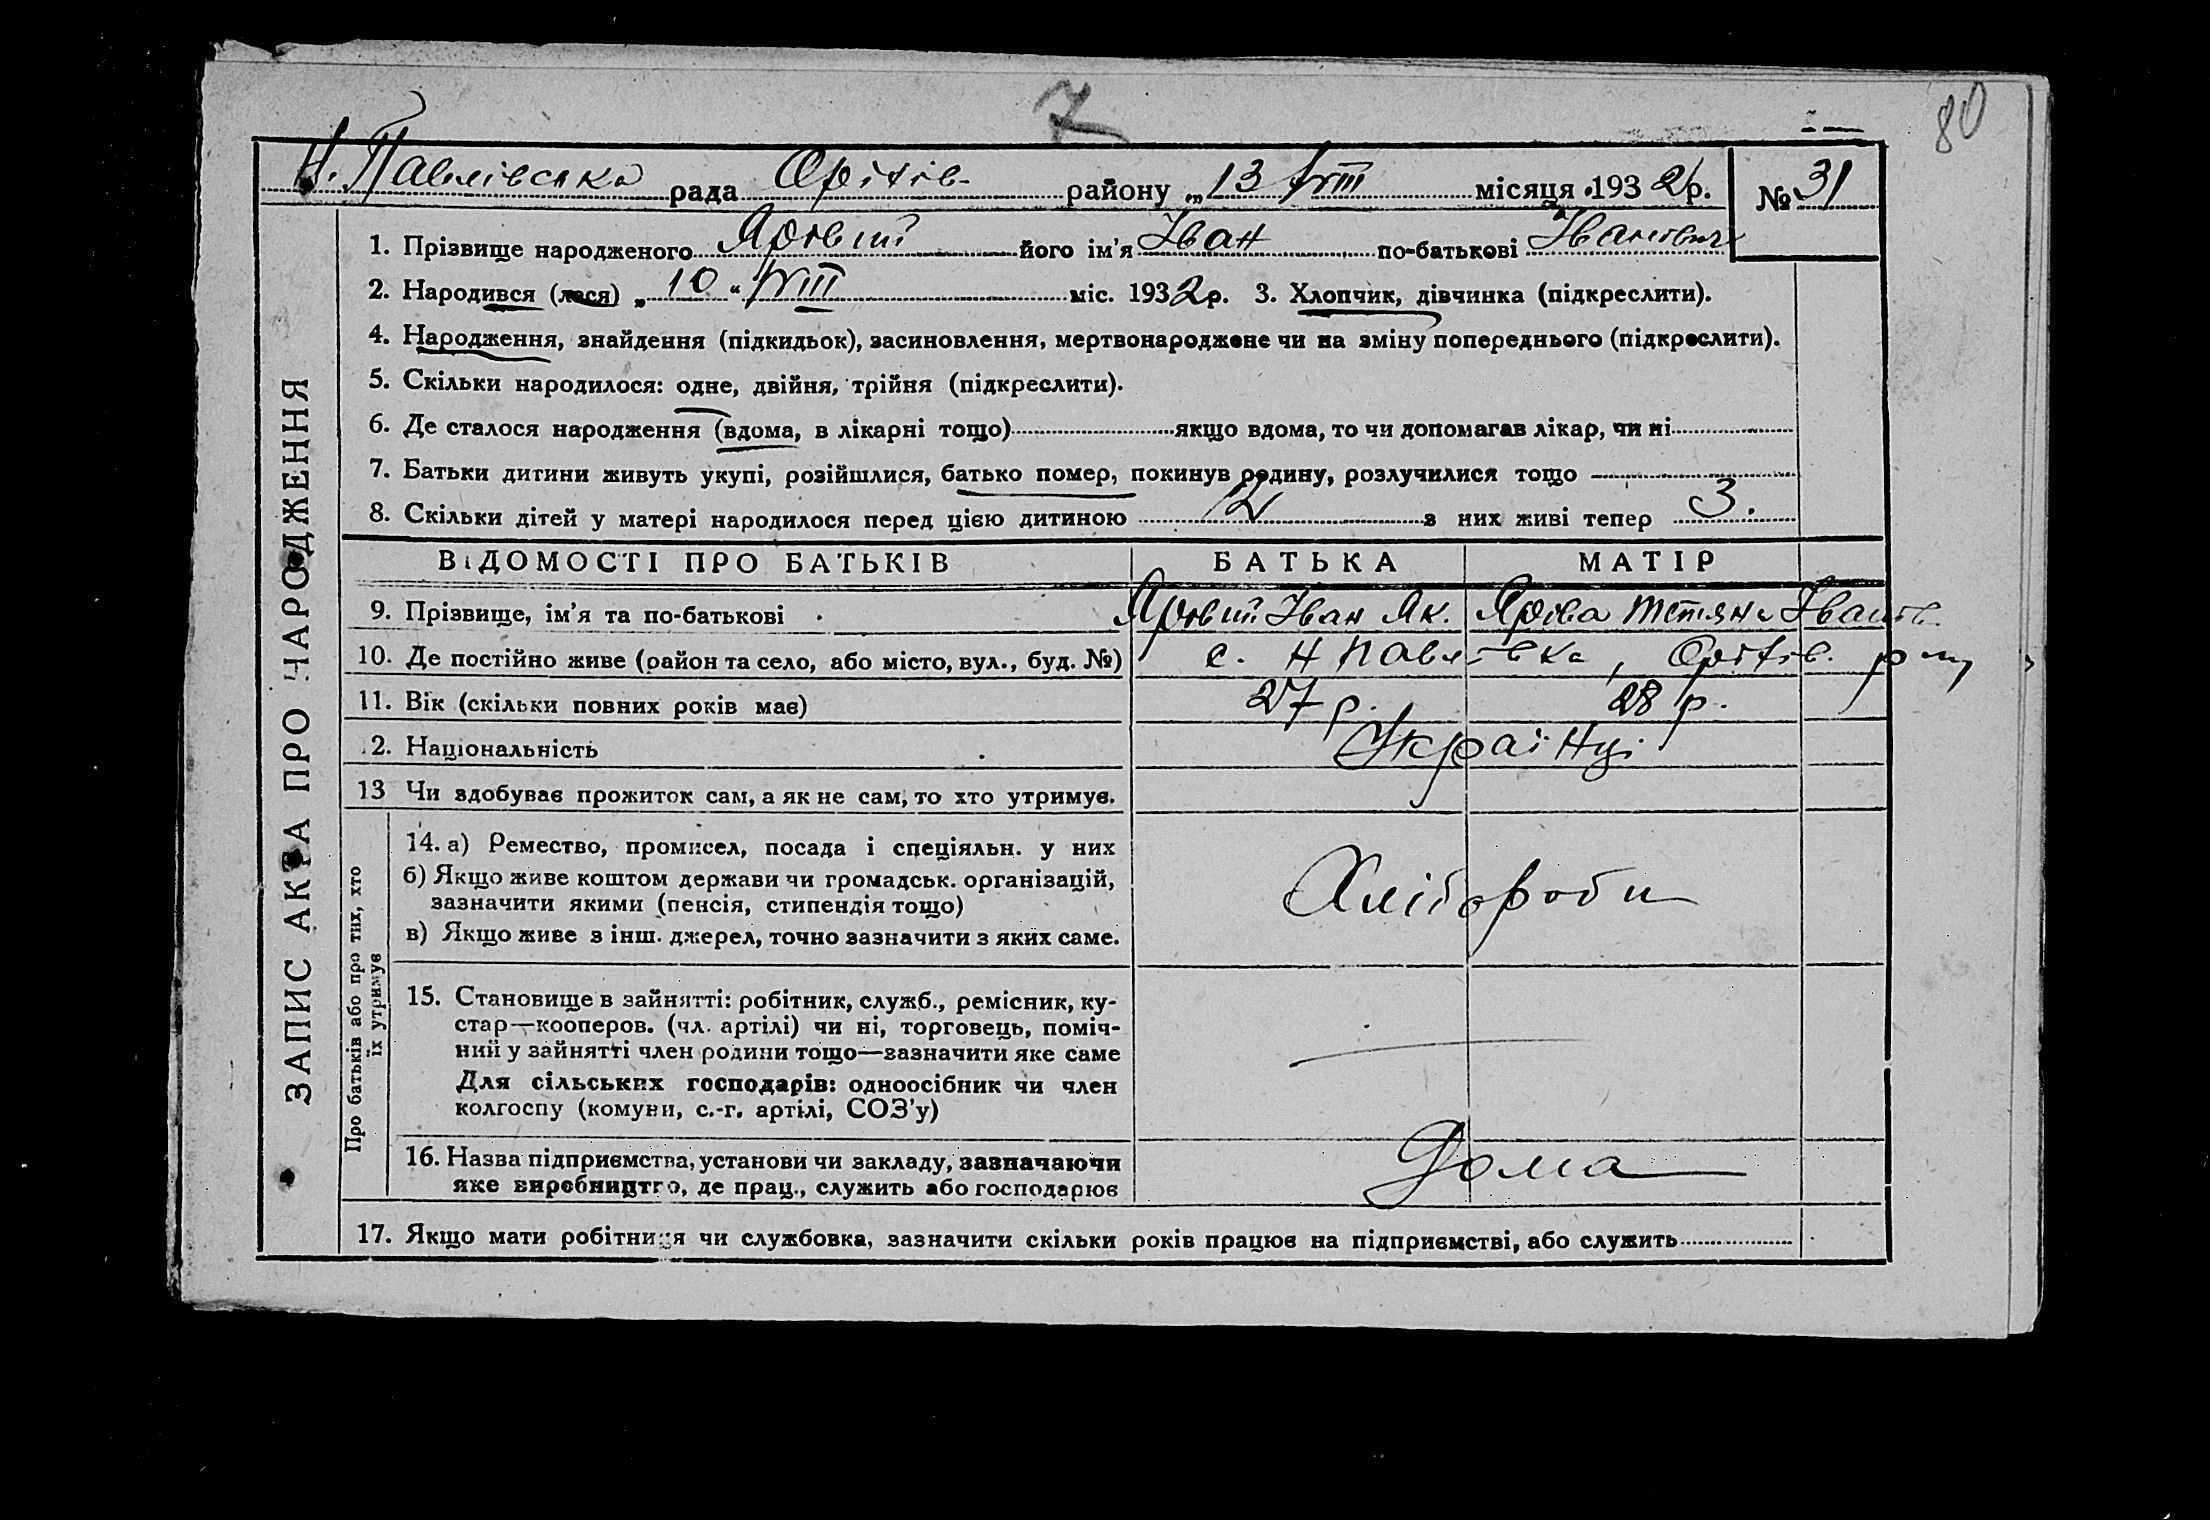 7
80
Н. Павлівська рада Оріхів. району „ 13 " VIII місяця 1932 р. № 31
1. Прізвище народженого Яровий його ім'я Іван по-батькові Іванович
2. Народився (лася) „ 10 “ VIII міс. 1932 р. 3. Хлопчик, дівчинка (підкреслити).
4. Народження, знайдення (підкидьок), засиновлення, мертвонароджене чи на зміну попереднього (підкреслити).
5. Скільки народилося: одне, двійня, трійня (підкреслити).
6. Де сталося народження (вдома, в лікарні тощо) якщо вдома, то чи допомагав лікар, чи ні
7. Батьки дитини живуть укупі, розійшлися, батько помер, покинув родину, розлучилися тощо
8. Скільки дітей у матері народилося перед цією дитиною 2 з них живі тепер 3.
ВІДОМОСТІ ПРО БАТЬКІВ БАТЬКА МАТІР
9. Прізвище, ім'я та по-батькові Яровий Іван Як. Ярова Тетяна Іванів.
10. Де постійно живе (район та село, або місто, вул., буд. №) с. Н Павлівка, Оріхів. р-ну
11. Вік (скільки повних років має) 27 р. 28 р.
12. Національність Українці
13 Чи здобуває прожиток сам, а як не сам, то хто утримує.
14. а) Ремество, промисел, посада і спеціяльн. у них
б) Якщо живе коштом держави чи громадськ. організацій,
зазначити якими (пенсія, стипендія тощо)
Хлібороби
в) Якщо живе з інш. джерел, точно зазначити з яких саме.
15. Становище в зайнятті: робітник, служб., ремісник, ку-
стар—кооперов. (чл. артілі) чи ні, торговець, поміч-
ний у зайнятті член родини тощо—зазначити яке саме
Для сільських господарів: одноосібник чи член
колгоспу (комуни, с.-г. артілі, СОЗ'у)
16. Назва підприємства, установи чи закладу, зазначаючи
яке виробництво, де прац., служить або господарює
Дома
17. Якщо мати робітниця чи службовка, зазначити скільки років працює на підприємстві, або служить
ЗАПИС АКТА ПРО НАРОДЖЕННЯ
Про батьків або про тих, хто
їх утримує